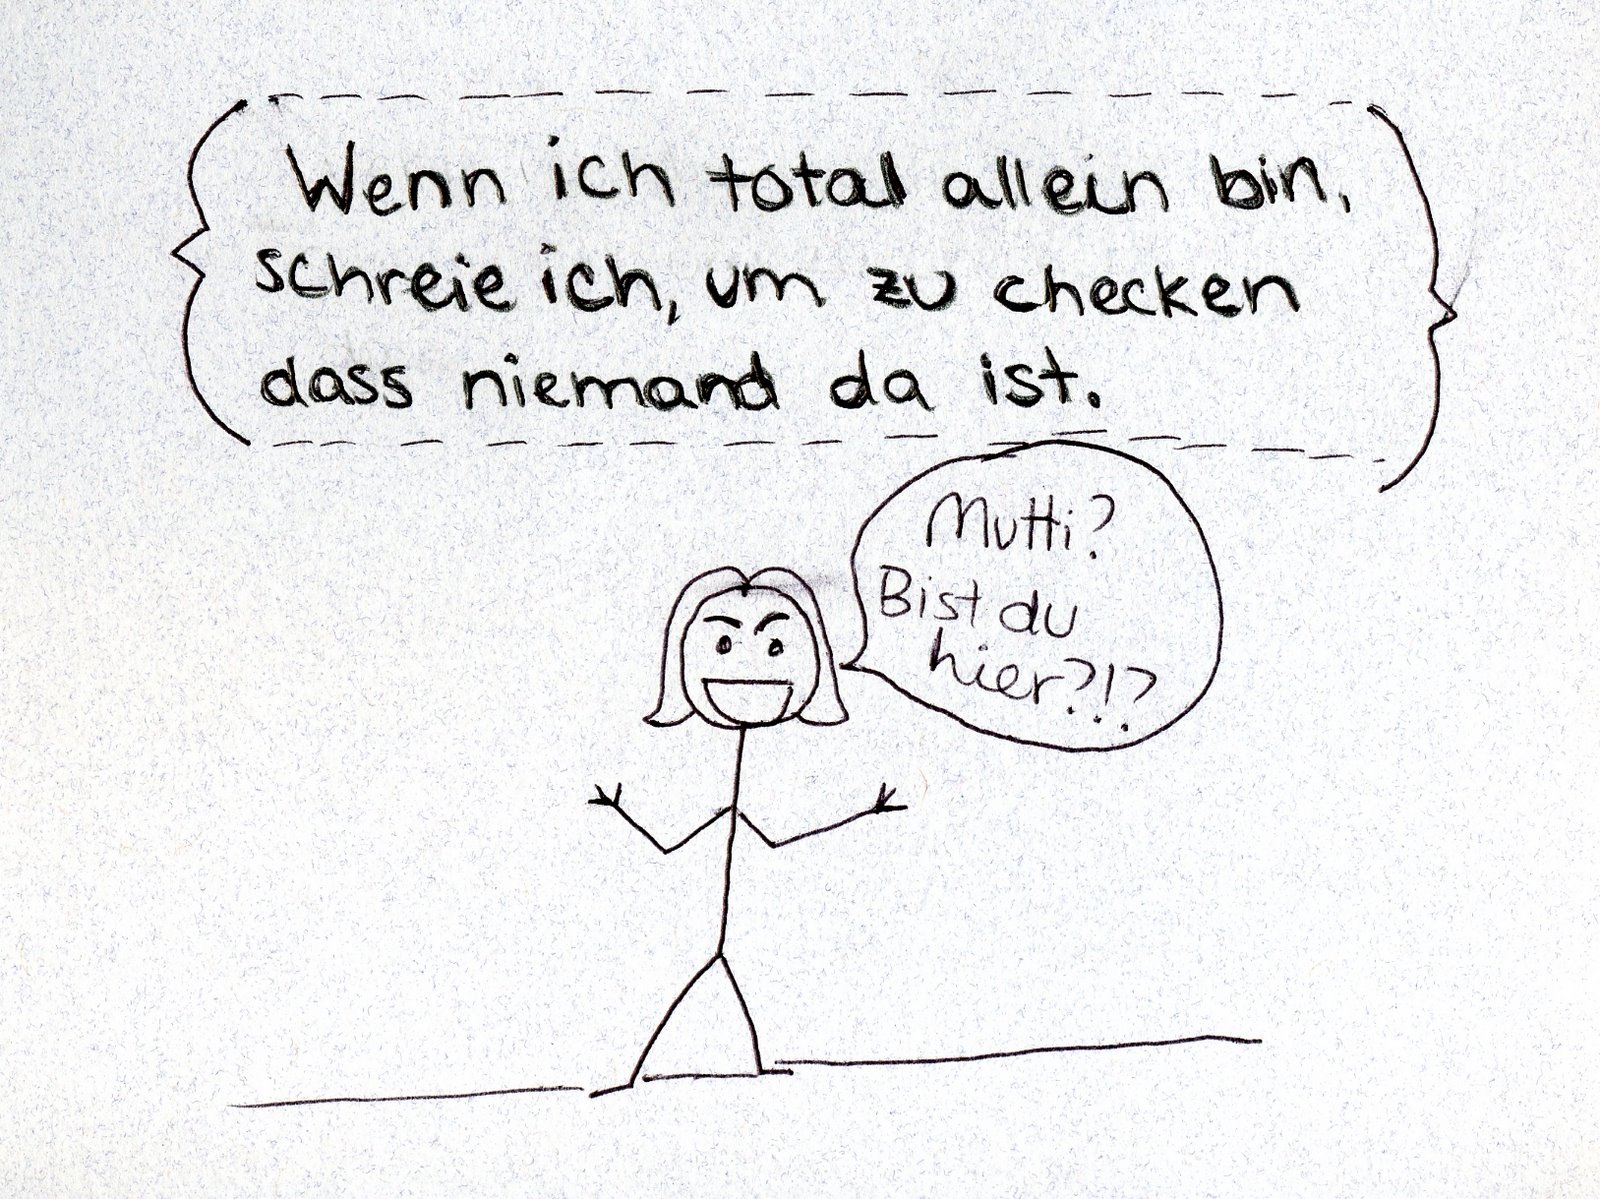 Wenn ich total allein bin,
schreie ich, um zu checken
dass niemand da ist.
Mutti?
Bist du
hier?!?